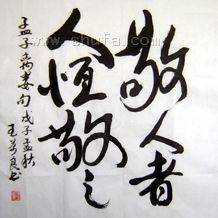 敬人者
人恒敬之
孟子离娄句 戊子孟秋
王
书